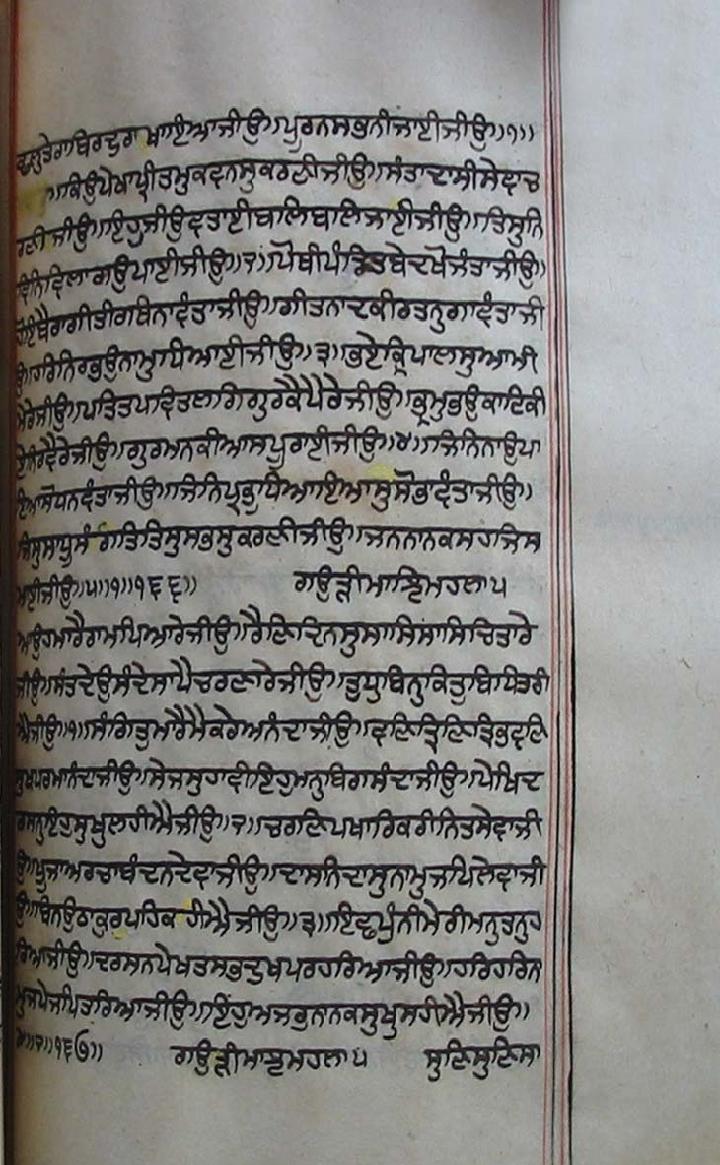 ਛੁਤੇਰਾਬਿਰਦੁਰਾਖਾਇਆਜੀਉ॥ਪੂਰਨਸਭਨੀਜਾਈਜੀਉ॥੧॥
॥ਕਿਉਪੇਖਾਪ੍ਰੀਤਮੁਕਵਨਸੁਕਰਣੀਜੀਉ॥ਸੰਤਾਦਾਸੀਸੇਵਾਚ
ਰਣੀਜੀਉ॥ਇਹੁਜੀਉਵਤਾਈਬਲਿਬਲਿਜਾਈਜੀਉ॥ਤਿਸੁਨਿ
ਵਿਨਿਵਿਲਾਗਉਪਾਈਜੀਉ॥੨॥ਪੋਥੀਪੰਡਿਤਬੇਦਖੋਜੰਤਾਜੀਉ॥
ਹੋਇਬੈਰਾਗੀਤੀਰਥਿਨਾਵੰਤਾਜੀਉ॥ਗੀਤਨਾਦਕੀਰਤਨੁਗਾਵੰਤਾਜੀ
ਉ॥ਹਰਿਨਿਰਭਉਨਾਮੁਧਿਆਈਜੀਉ॥੩॥ਭਏਕ੍ਰਿਪਾਲਸੁਆਮੀ
ਮੇਰੇਜੀਉ॥ਪਤਿਤਪਵਿਤਲਗਿਗੁਰਕੈਪੈਰੇਜੀਉ॥ਭ੍ਰਮੁਭਉਕਾਟਿਕੀ
ਏਨਿਰਵੈਰੇਜੀਉ॥ਗੁਰਮਨਕੀਆਸਪੂਰਾਈਜੀਉ॥੪॥ਜਿਨਿਨਾਉਪਾ
ਇਆਸੋਧਨਵੰਤਾਜੀਉ॥ਜਿਨਿਪ੍ਰਭੁਧਿਆਇਆਸੁਸੋਭਾਵੰਤਾਜੀਉ॥
ਜਿਸੁਸਾਧੂਸੰਗਤਿਤਿਸੁਸਭਸੁਕਰਣੀਜੀਉ॥ਜਨਨਾਨਕਸਹਜਿਸ
ਮਾਈਜੀਉ॥੫॥੧॥੧੬੬॥ ਗਉੜੀਮਾਝਮਹਲਾ੫
ਆਉਹਮਾਰੈਰਾਮਪਿਆਰੇਜੀਉ॥ਰੈਣਿਦਿਨਸੁਸਾਸਿਸਾਸਿਚਿਤਾਰੇ
ਜੀਉ॥ਸੰਤਦੇਉਸੰਦੇਸਾਪੈਚਰਣਾਰੇਜੀਉ॥ਤੁਧੁਬਿਨੁਕਿਤੁਬਿਧਿਤਰੀ
ਐਜੀਉ॥੧॥ਸੰਗਿਤੁਮਾਰੈਮੈਕਰੇਅਨੰਦਾਜੀਉ॥ਵਣਿਤ੍ਰਿਣਿਤ੍ਰਿਭਵਣਿ
ਸੁਖਪਰਮਾਨੰਦਾਜੀਉ॥ਸੇਜਸੁਹਾਵੀਇਹੁਮਨੁਬਿਗਸੰਦਾਜੀਉ॥ਪੇਖਿਦ
ਰਸਨੁਇਹੁਸੁਖੁਲਹੀਐਜੀਉ॥੨॥ਚਰਣਪਖਾਰਿਕਰੀਨਿਤਸੇਵਾਜੀ
ਉ॥ਪੂਜਾਅਰਚਾਬੰਦਨਦੇਵਾਜੀਉ॥ਦਾਸਨਿਦਾਸੁਨਾਮੁਜਪਿਲੇਵਾਜੀ
ਉ॥ਬਿਨਉਠਾਕੁਰਪਹਿਕਹੀਐਜੀਉ॥੩॥ਇਛਪੁੰਨੀਮੇਰੀਮਨੁਤਨੁਹ
ਰਿਆਜੀਉ॥ਦਰਸਨਪੇਖਤਸਭਦੁਖਪਰਹਰਿਆਜੀਉ॥ਹਰਿਹਰਿਨ
ਾਮੁਜਪੇਜਪਿਤਰਿਆਜੀਉ॥ਇਹੁਅਜਰੁਨਾਨਕਸੁਖੁਸਹੀਐਜੀਉ॥
੪॥੨॥੧੬੭॥ ਗਉੜੀਮਾਝਮਹਲਾ੫ ਸੁਣਿਸੁਣਿਸਾ